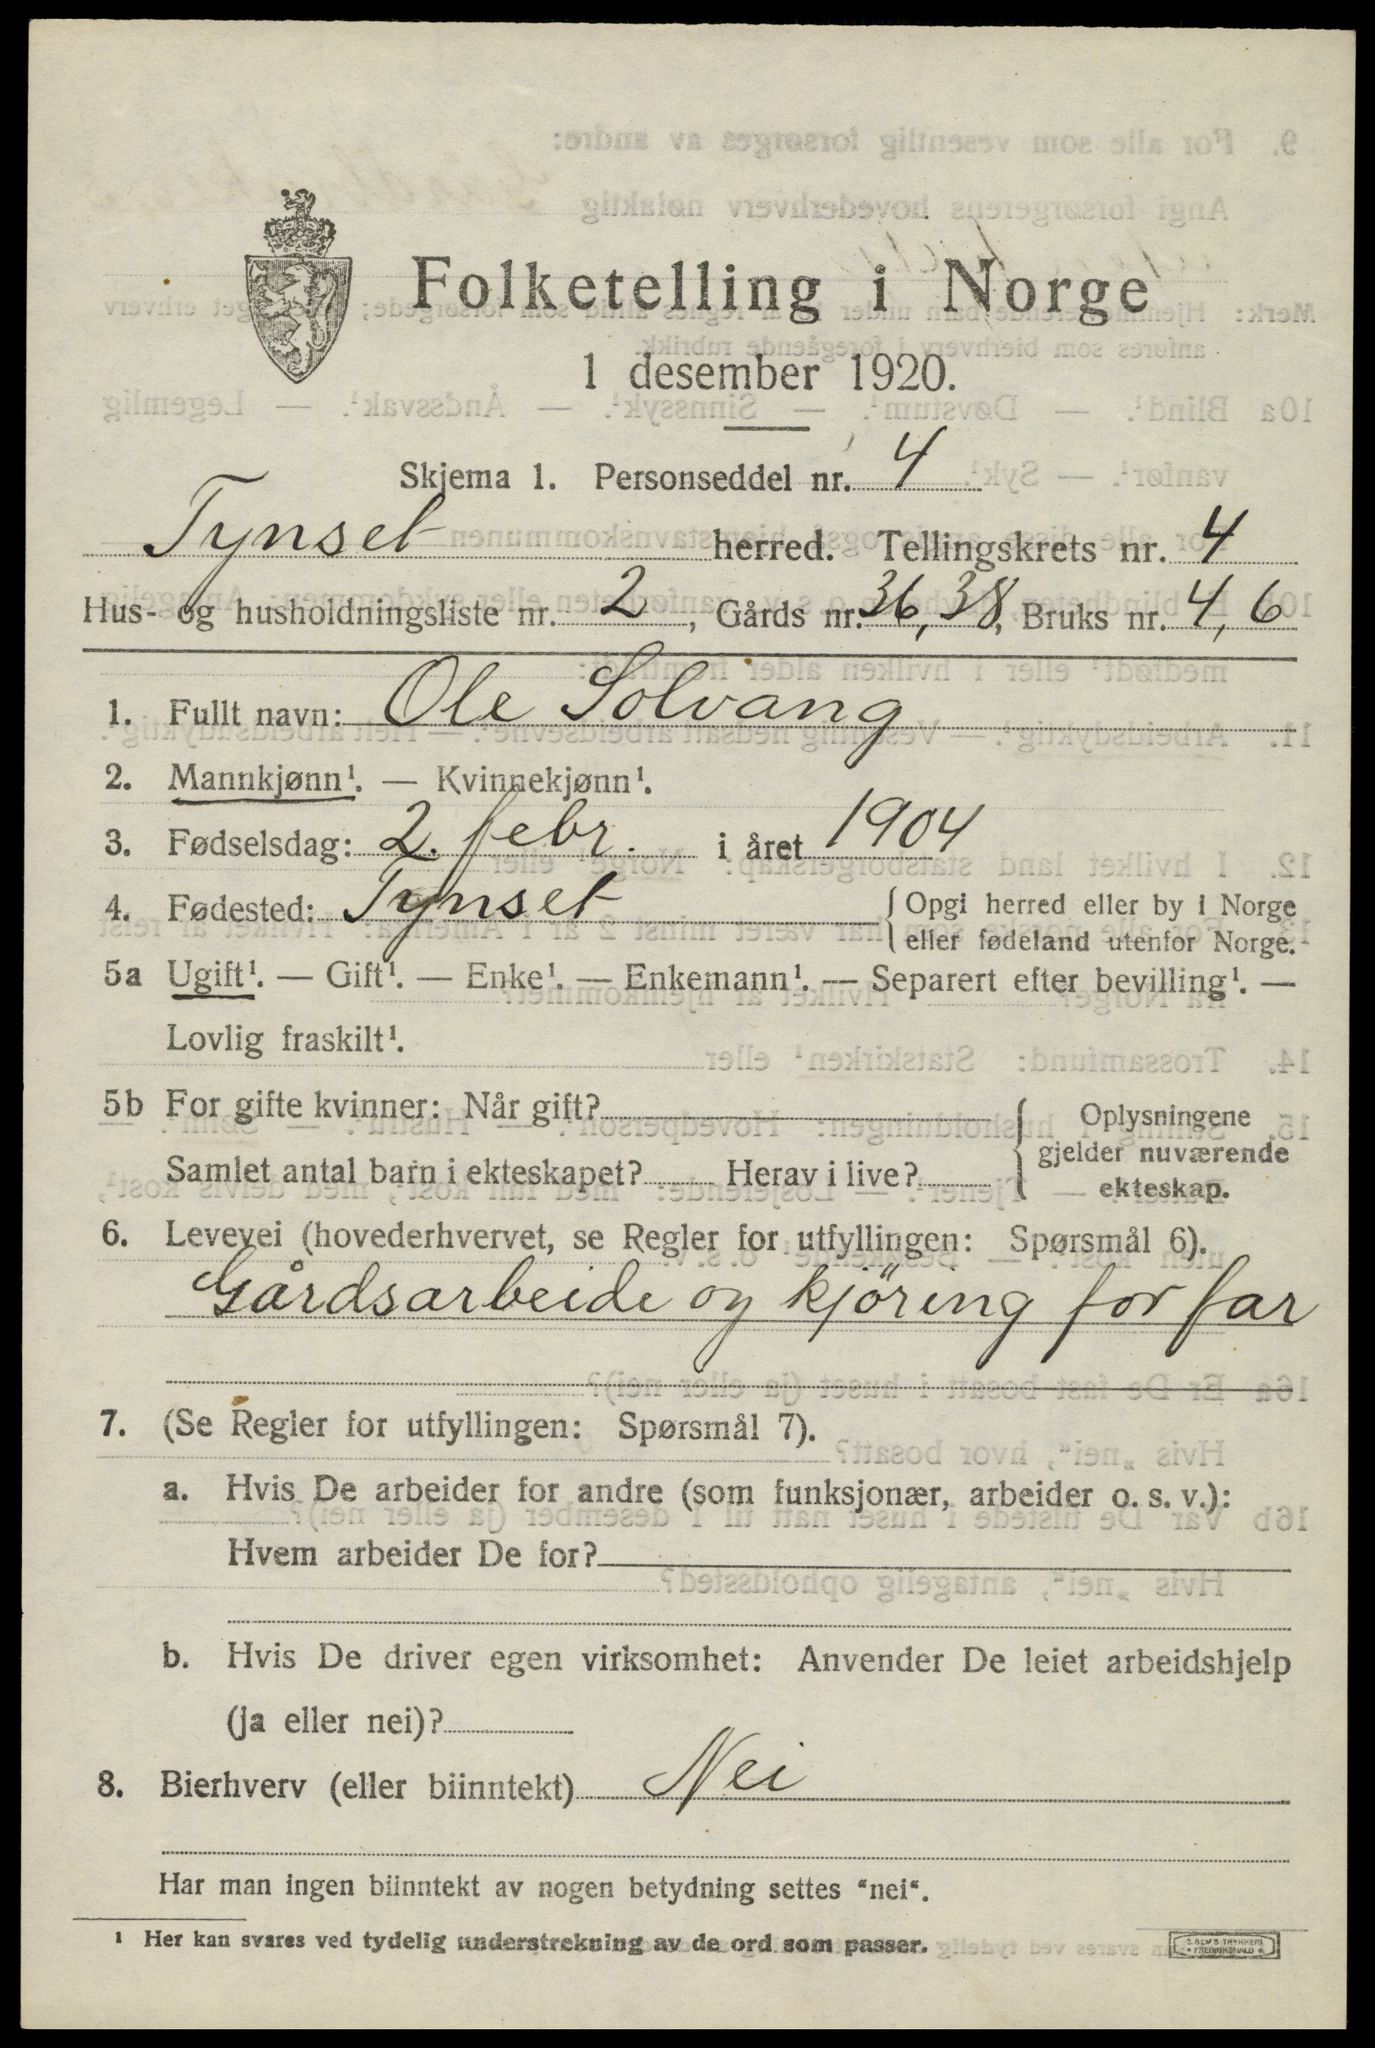 Folketelling i Norge
1 desember 1920.
Skjema 1. Personseddel nr. 4
Tynset herred. Tellingskrets nr. 4
Hus- og husholdningsliste nr. 2, Gårds nr. 36, 38, Bruks nr. 4, 6
1. Fullt navn: Ole Solvang
2. Mannkjønn¹. — Kvinnekjønn¹.
3. Fødselsdag: 2. febr. i året 1904
4. Fødested: Tynset { Opgi herred eller by i Norge
eller fødeland utenfor Norge.
5a Ugift¹. — Gift¹. — Enke¹. — Enkemann¹. — Separert efter bevilling¹. —
Lovlig fraskilt¹.
5b For gifte kvinner: Når gift? { Oplysningene
gjelder nuværende
Samlet antal barn i ekteskapet? Herav i live? ekteskap.
6. Levevei (hovederhvervet, se Regler for utfyllingen: Spørsmål 6).
Gårdsarbeide og kjöring for far
7. (Se Regler for utfyllingen: Spørsmål 7).
a. Hvis De arbeider for andre (som funksjonær, arbeider o. s. v.):
Hvem arbeider De for?
b. Hvis De driver egen virksomhet: Anvender De leiet arbeidshjelp
(ja eller nei)?
8. Bierhverv (eller biinntekt) Nei
Har man ingen biinntekt av nogen betydning settes "nei".
¹ Her kan svares ved tydelig understrekning av de ord som passer.